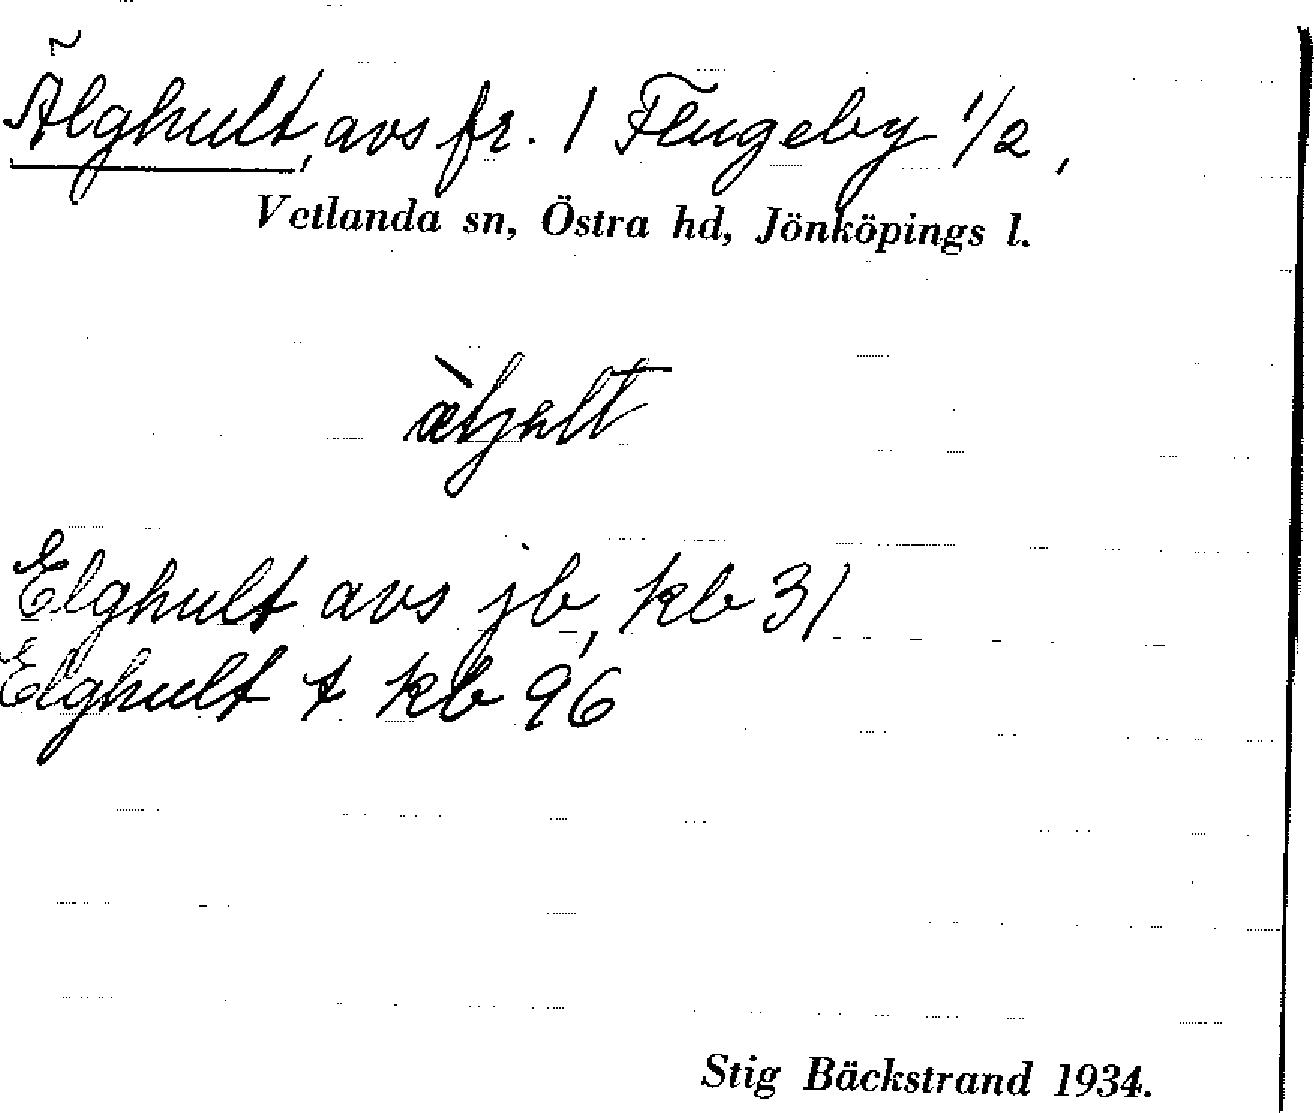 Älghult, avs fr. 1 Flugeby 1/2,
Vetlanda sn, Östra hd, Jönköpings l.
Elghult avs jb, kb 31
Elghult t kb 96
Stig Bäckstrand 1934.